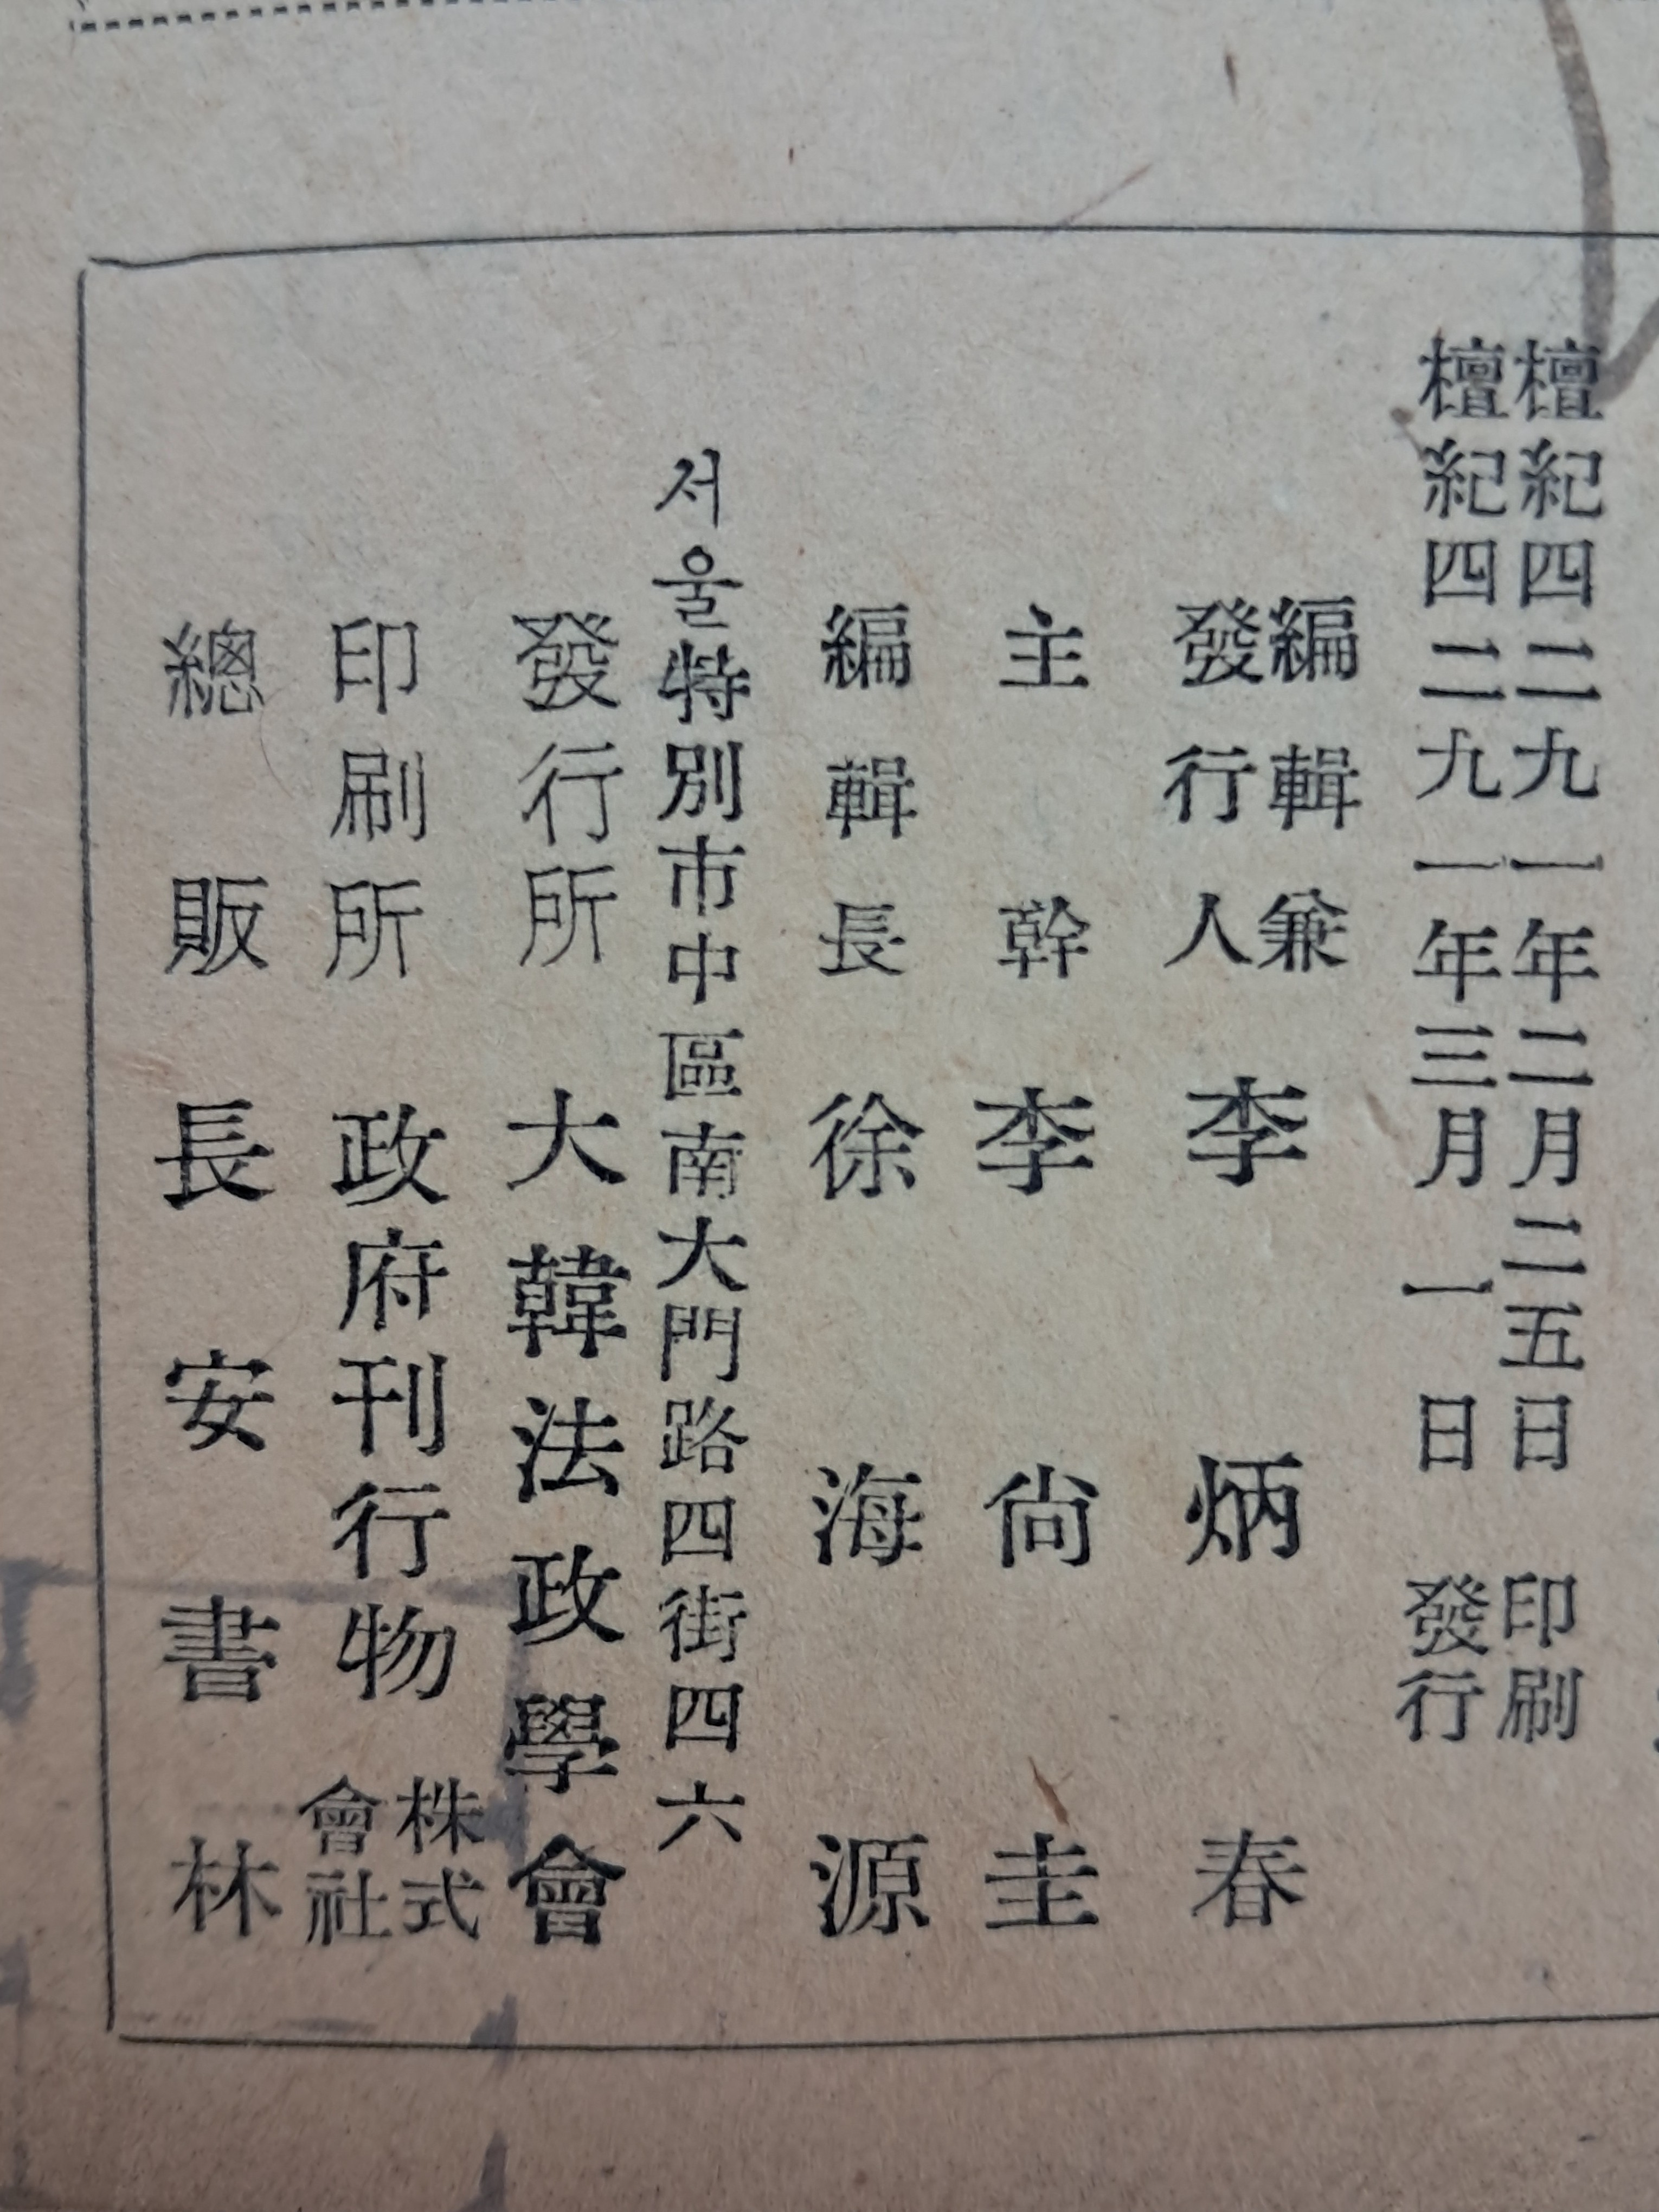 檀紀四二九一年二月二五日 印刷
檀紀四二九一年三月一日 發行
編輯兼
發行人 李炳春
主幹 李尙圭
編輯長 徐海源
서울特別市中區南大門路四街四六
發行所 大韓法政學會
印刷所 政府刊行物株式會社
總販 長安書林